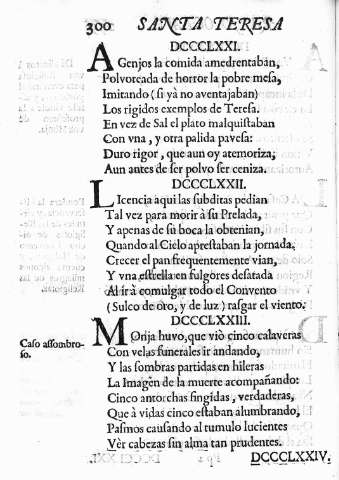 300 SANTA TERESA
DCCCLXXI.
AGenjos la comida amedrentaban,
Polvoreada de horror la pobre mesa,
Imitando (si yà no aventajaban)
Los rigidos exemplos de Teresa.
En vez de Sal el plato malquistaban
Con vna, y otra palida pavesa:
Duro rigor, que aun oy atemoriza,
Aun antes de ser polvo ser ceniza.
DCCCLXXII.
LIcencia aqui las subditas pedian
Tal vez para morir à su Prelada,
Y apenas de su boca la obtenian,
Quando al Cielo aprestaban la jornada,
Crecer el pan frequentemente vian,
Y vna estrella en fulgores desatada
Al irà comulgar todo el Convento
(Sulco de oro, y de luz) rasgar el viento.
DCCCLXXIII.
Caso assombro-
so.
MOnja huvo, que viò cinco calaveras
Con velas funerales ir andando,
Y las sombras partidas en hileras
La Imagen de la muerte acompañando:
Cinco antorchas fingidas, verdaderas,
Que à vidas cinco estaban alumbrando,
Pasmos causando al tumulo lucientes
Vèr cabezas sin alma tan prudentes.
DCCCLXXIV.